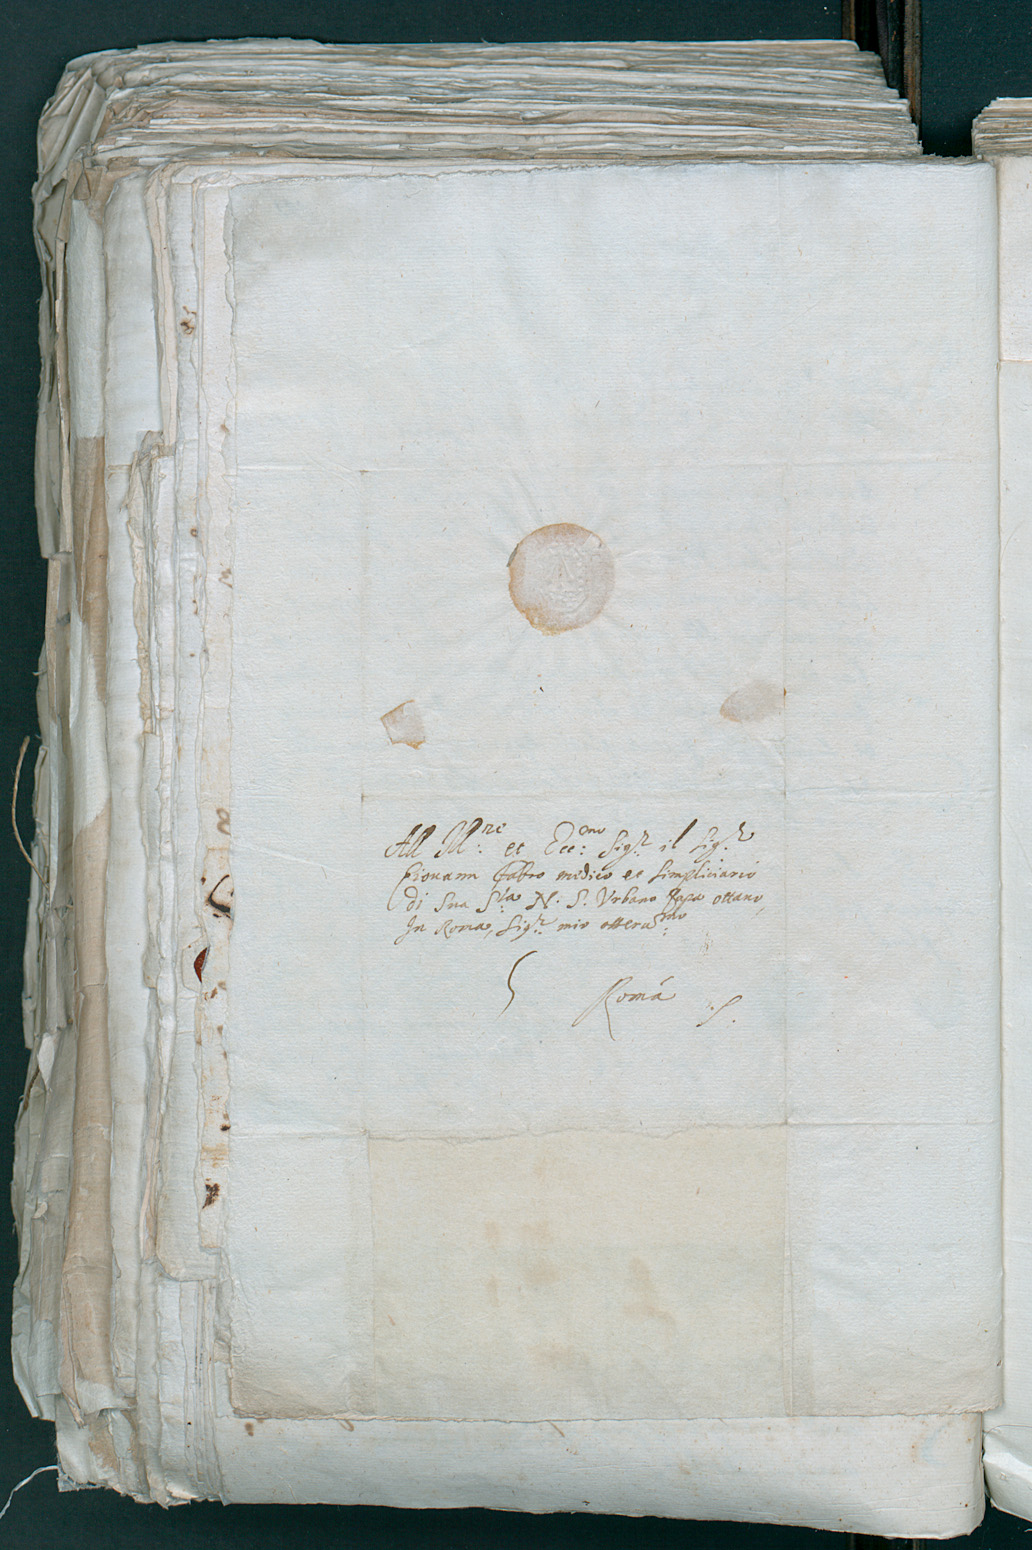 All Ill:re et Ecc:mo Sig:r il Sig:r
Giouann Fabro medico et simpliciario
di Sua S:ta N. S. Vrbano Papa ottauo,
In Roma, Sig:r mio osserua:mo
Romá